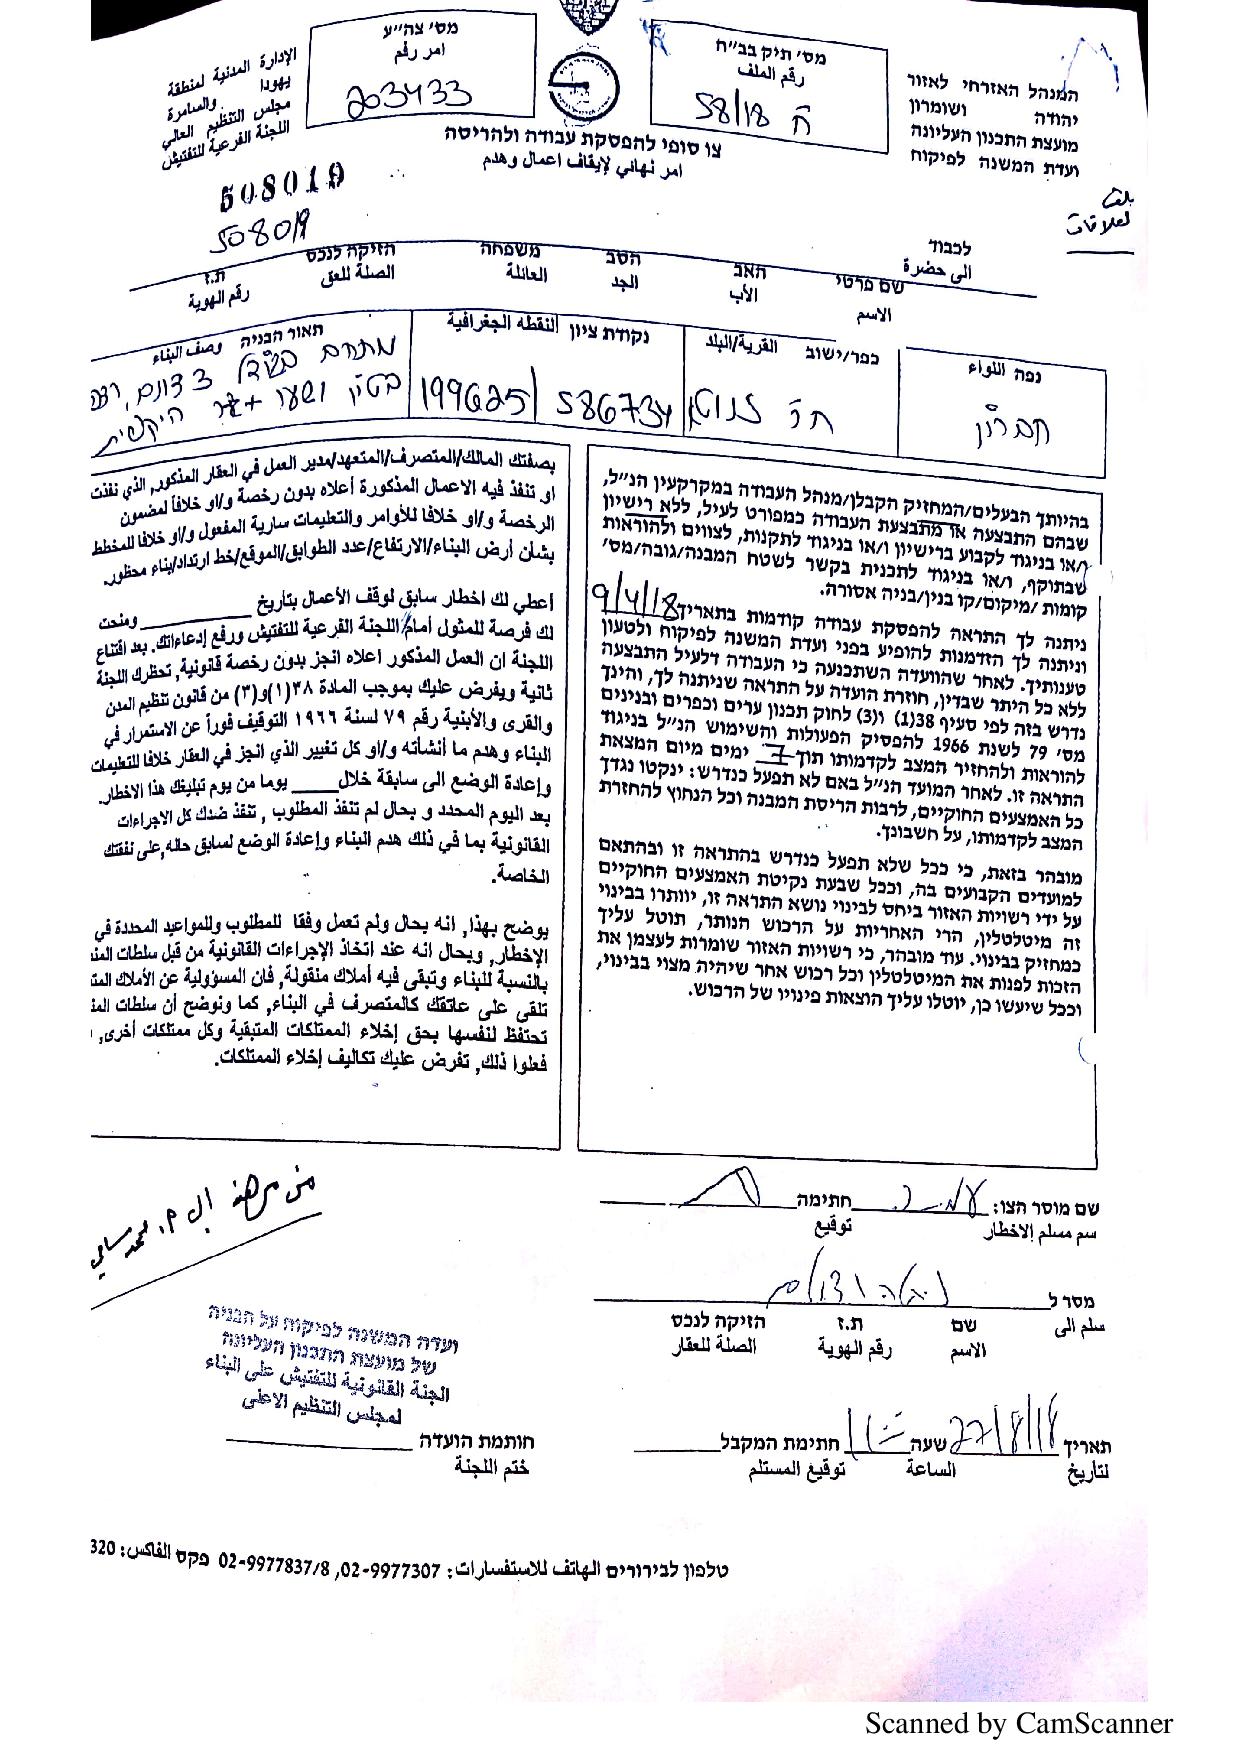 המנהל האזרחי לאזור
יהודה ושומרון
מועצת התכנון העליונה
ועדת המשנה לפיקוח
מס׳ תיק בב״ח
رقم الملف
ח 58/18
מס׳ צה״ע
امر رقم
203433
الإدارة المدنية لمنطقة
يهودا والسامرة
مجلس التنظيم العالي
اللجنة الفرعية للتفتيش
צו סופי להפסקת עבודה ולהריסה
امر نهائي لإيقاف اعمال وهدم
508019
508019
לכבוד
الى حضرة
שם פרטי האב הסב משפחה הזיקה לנכס ת.ז
الاسم الأب الجد العائلة الصلة للعق رقم الهوية
נפה اللواء
חברון
כפר/ישוב القرية/البلد
נקודת ציון النقطه الجغرافية
586734
199625
תאור הבניה وصف البناء
בהיותך הבעלים/המחזיק הקבלן/מנהל העבודה במקרקעין הנ״ל,
שבהם התבצעה או מתבצעת העבודה כמפורט לעיל, ללא רישיון
ו/או בניגוד לקבוע ברישיון ו/או בניגוד לתקנות, לצווים ולהוראות
שבתוקף, ו/או בניגוד לתכנית בקשר לשטח המבנה/גובה/מס׳
קומות /מיקום/קו בנין/בניה אסורה.
ניתנה לך התראה להפסקת עבודה קודמות בתאריך 9/4/18
וניתנה לך הזדמנות להופיע בפני ועדת המשנה לפיקוח ולטעון
טענותיך. לאחר שהוועדה השתכנעה כי העבודה דלעיל התבצעה
ללא כל היתר שבדין, חוזרת הועדה על התראה שניתנה לך, והינך
נדרש בזה לפי סעיף 38(1) ו(3) לחוק תכנון ערים וכפרים ובנינים
מס׳ 79 לשנת 1966 להפסיק הפעולות והשימוש הנ״ל בניגוד
להוראות ולהחזיר המצב לקדמותו תוך 7 ימים מיום המצאת
התראה זו. לאחר המועד הנ״ל באם לא תפעל כנדרש: ינקטו נגדך
כל האמצעים החוקיים, לרבות הריסת המבנה וכל הנחוץ להחזרת
המצב לקדמותו, על חשבונך.
מובהר בזאת, כי ככל שלא תפעל כנדרש בהתראה זו ובהתאם
למועדים הקבועים בה, וככל שבעת נקיטת האמצעים החוקיים
על ידי רשויות האזור ביחס לבינוי נושא התראה זו, יוותרו בבינוי
זה מיטלטלין, הרי האחריות על הרכוש הנותר, תוטל עליך
כמחזיק בבינוי. עוד מובהר, כי רשויות האזור שומרות לעצמן את
הזכות לפנות את המיטלטלין וכל רכוש אחר שיהיה מצוי בבינוי,
וככל שיעשו כן, יוטלו עליך הוצאות פינויו של הרכוש.
بصفتك المالك/المتصرف/المتعهد/مدير العمل في العقار المذكور, الذي نفذت
او تنفذ فيه الاعمال المذكورة أعلاه بدون رخصة و/او خلافاً لمضمون
الرخصة و/او خلافا للأوامر والتعليمات سارية المفعول و/او خلافا للمخطط
بشان أرض البناء/الارتفاع/عدد الطوابق/الموقع/خط ارتداد/بناء محظور.
أعطي لك اخطار سابق لوقف الأعمال بتاريخ ________ ومنحت
لك فرصة للمثول أمام اللجنة الفرعية للتفتيش ورفع إدعاءاتك. بعد اقتناع
اللجنة ان العمل المذكور اعلاه انجز بدون رخصة قانونية, تحظرك اللجنة
ثانية ويفرض عليك بموجب المادة ٣٨(١)و(٣) من قانون تنظيم المدن
والقرى والأبنية رقم ٧٩ لسنة ١٩٦٦ التوقيف فوراً عن الاستمرار في
البناء وهدم ما أنشأته و/او كل تغيير الذي انجز في العقار خلافا للتعليمات
وإعادة الوضع الى سابقة خلال____ يوما من يوم تبليغك هذا الاخطار.
بعد اليوم المحدد و بحال لم تنفذ المطلوب , تنفذ ضدك كل الاجراءات
القانونية بما في ذلك هدم البناء وإعادة الوضع لسابق حاله, على نفقتك
الخاصة.
يوضح بهذا, انه بحال ولم تعمل وفقا للمطلوب وللمواعيد المحددة في
الإخطار, وبحال انه عند اتخاذ الإجراءات القانونية من قبل سلطات
بالنسبة للبناء وتبقى فيه أملاك منقولة, فان المسؤولية عن الأملاك
تلقى على عاتقك كالمتصرف في البناء, كما ونوضح أن سلطات
تحتفظ لنفسها بحق إخلاء الممتلكات المتبقية وكل ممتلكات أخرى,
فعلوا ذلك, تفرض عليك تكاليف إخلاء الممتلكات.
שם מוסר הצו: חתימה
سم مسلم الاخطار توقيع
מסר ל
سلم الى
שם ת.ז הזיקה לנכס
الاسم رقم الهوية الصلة للعقار
ועדה המשנה לפיקוח על הבניה
של מועצת התכנון העליונה
الجنة القانونية للتفتيش على البناء
لمجلس التنظيم الاعلى
תאריך 22/8/18 שעה חתימת המקבל
لتاريخ الساعة توقيع المستلم
חותמת הועדה
ختم اللجنة
טלפון לבירורים الهاتف للاستفسارات: 02-9977307, 02-9977837/8 פקס الفاكس: 320
Scanned by CamScanner